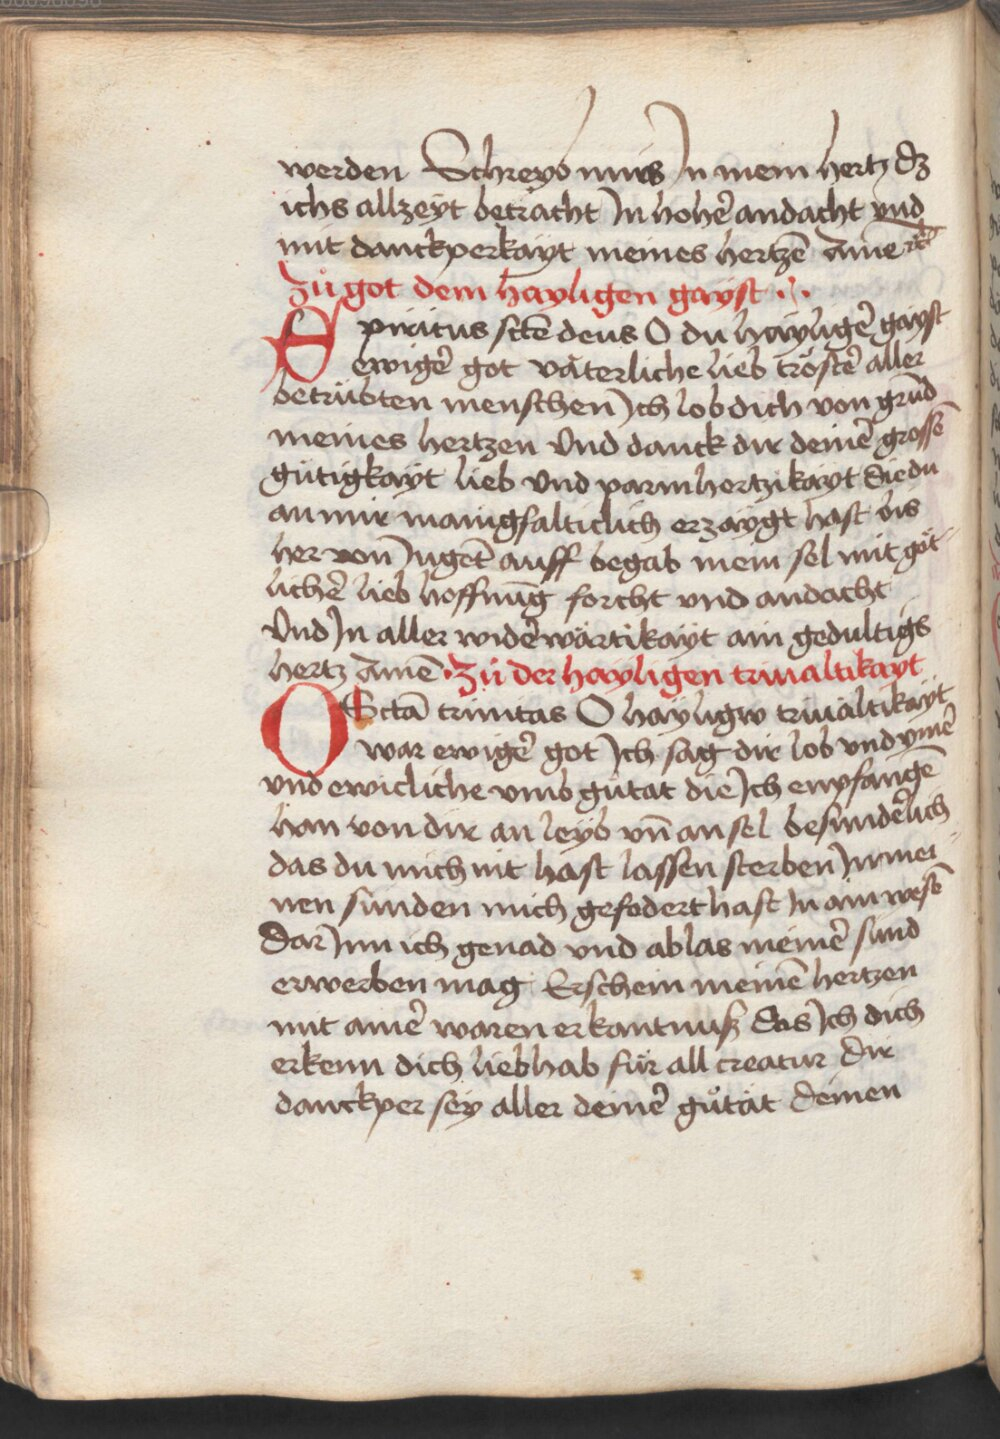 werden Schreyb mirs In mein hertz dz
ichs allzeyt betracht In hohē andacht vnd
mit danckperkayt meines hertzē Amē ⁊c̄
Zů got dem hayligen gayst
Spiritus sctē deus O du hayligē gayst
ewigē got väterliche lieb tröstē aller
betrübten menschen Ich lob dich von grūd
meines hertzen Vnd danck dir deinē grossē
gütigkayt lieb Vnd parmhertzikayt die du
an mir manigfalticlich erzaygt hast bis
her von Jugēt auff begab mein sel mit göt
lichē lieb hoffnūg forcht vnd andacht
Vnd In aller widēwärtikayt ain gedultigs
hertz Amē Zů der hayligen triualtikayt
O Sctā trinitas O hayligw triualtikayt
war ewigē got Ich sag dir lob vnd ymē
vnd ewicliche vmb gůtat die Ich enpfangē
han von dir an leyb vn̄ an sel besundēlich
das du mich nit hast lassen sterben In mei
nen sünden mich gefodert hast In ain wesē
Dar Inn ich genad vnd ablas meinē sünd
erwerben mag Erschein meinē hertzen
mit ainē waren erkantnuß das Ich dich
erkenn dich lieb hab für all creatur dir
danckper sey aller deinē gůtät deinen